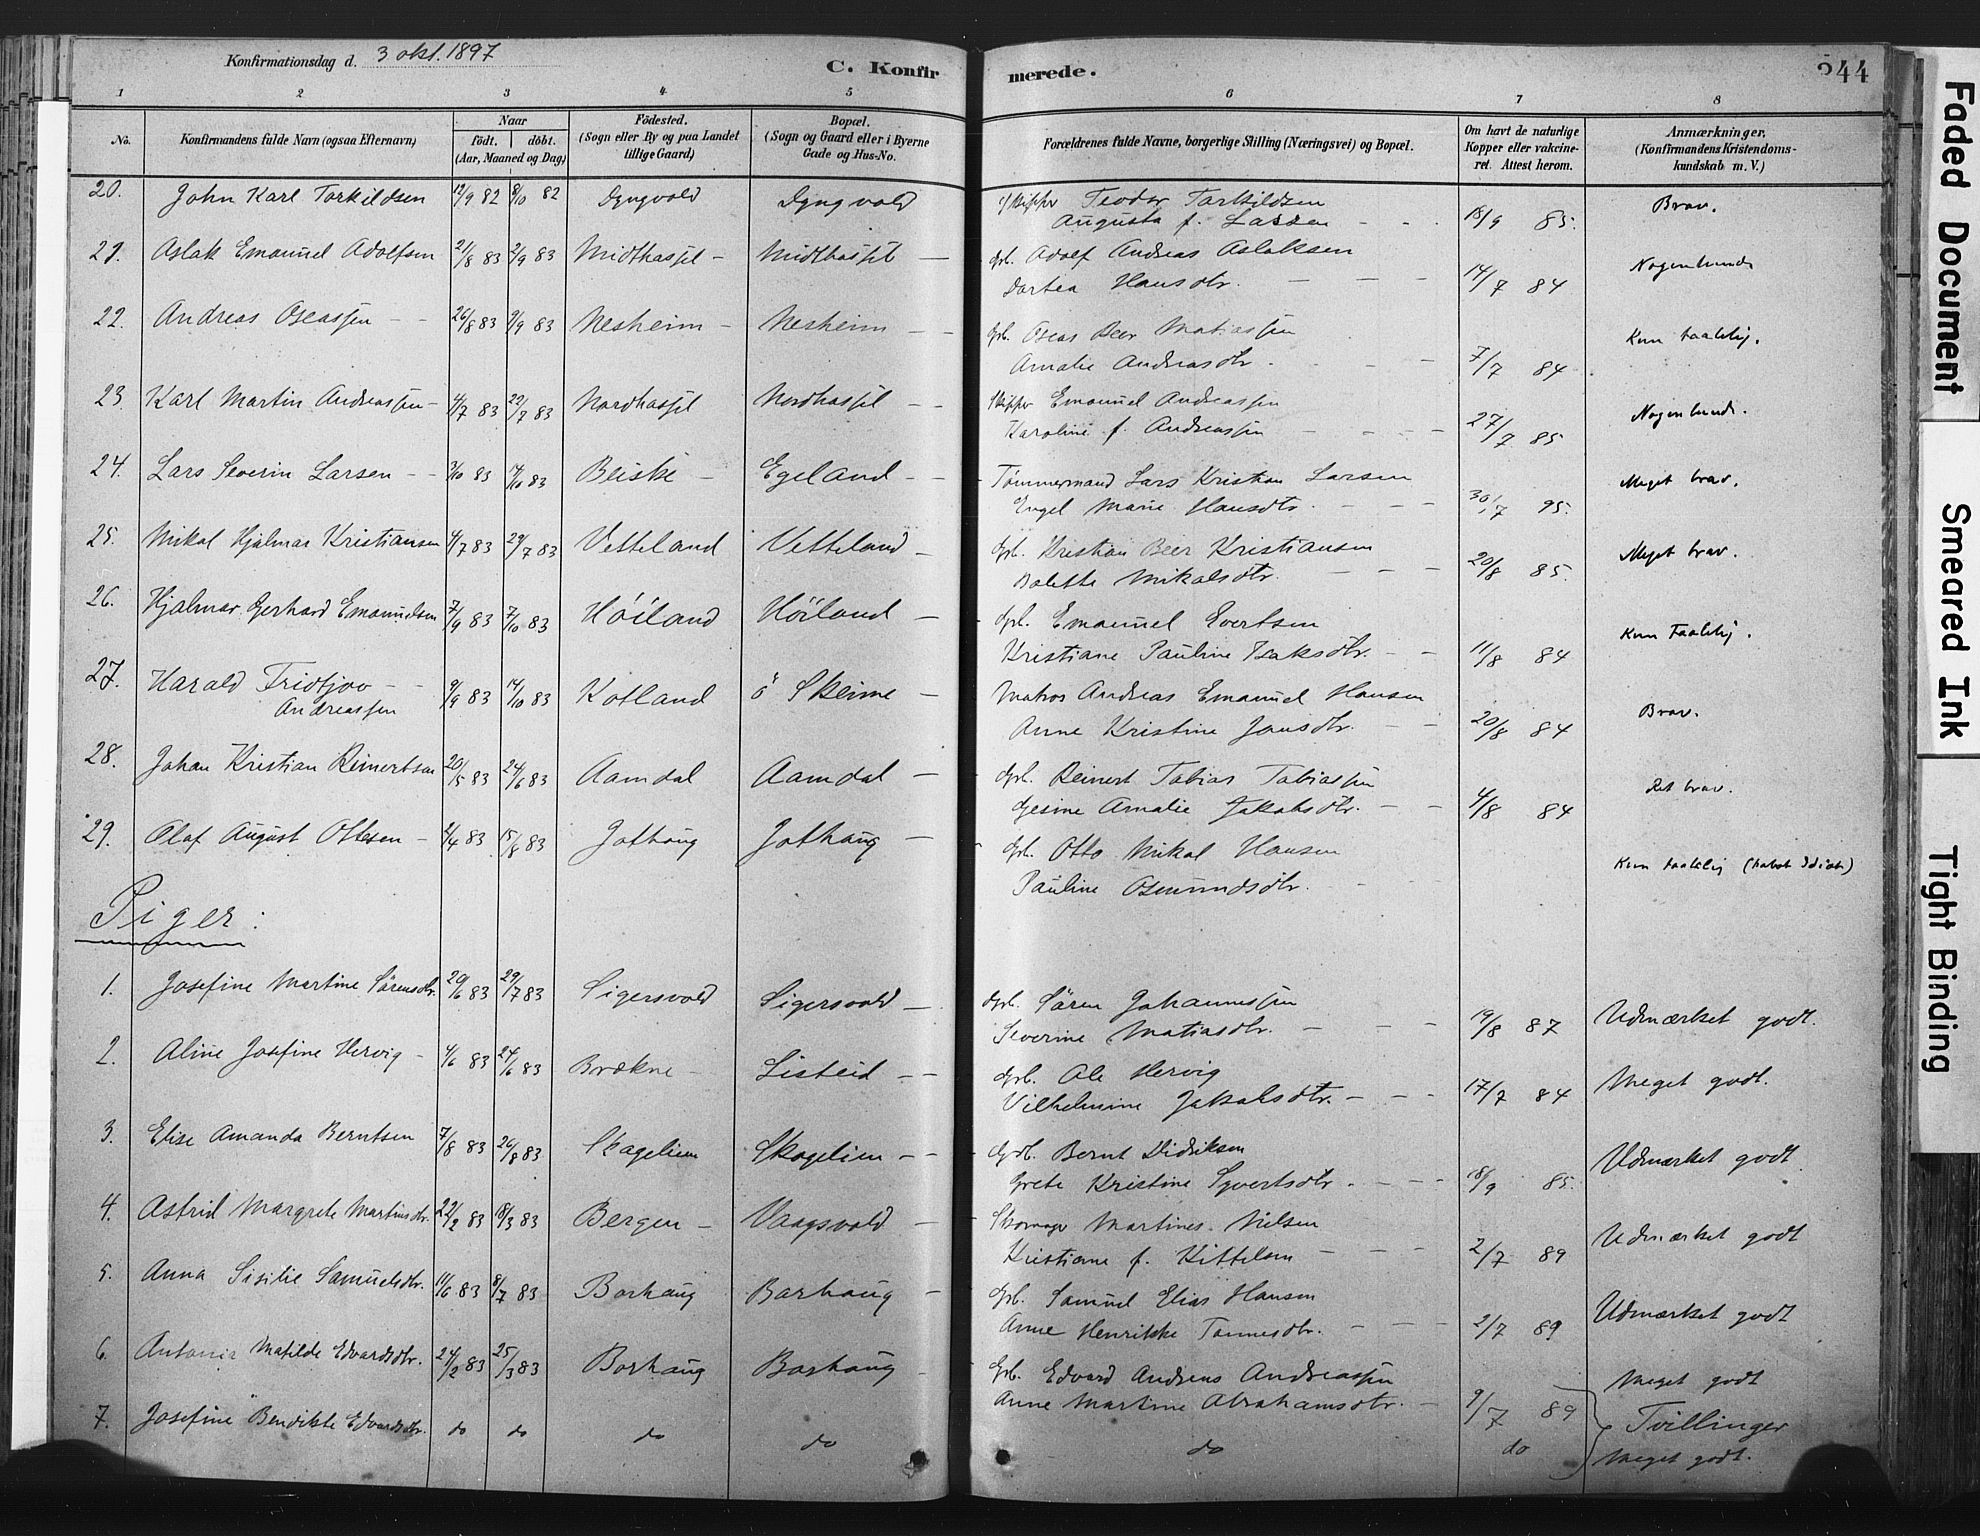 Konfirmationsdag d. 3 okt. 1897
C. Konfirmerede.
344
1 2 3 4 5 6 7 8
No.
Konfirmandens fulde Navn (ogsaa Efternavn)
Naar
født. døbt.
(Aar, Maaned og Dag)
Fødested.
(Sogn eller By og paa Landet tillige Gaard)
Bopæl.
(Sogn og Gaard eller i Byerne Gade og Hus-No.
Forældrenes fulde Navne, borgerlige Stilling (Næringsvei) og Bopæl.
Om havt de naturlige Kopper eller vakcineret. Attest herom.
Anmærkninger.
(Konfirmandens Kristendomskundskab m. V.)
20. John Karl Torkildsen 12/9 82 8/10 82 Dyngvold Dyngvold Skipper Teodor Torkildsen
Augusta f. Larsen 18/9 85. Brav.
21. Aslak Emanuel Adolfsen 21/8 83 2/9 83 Midthassel Midthassel Gbl. Adolf Andreas Aslaksen
Dortea Hansdtr. 14/7 84 Nogenlunde
22. Andreas Oseassen 26/8 83 9/9 83 Nesheim Nesheim Gbl. Oseas Beer Matiassen
Amalie Andreasdtr. 7/7 84 Kun taalelig.
23. Karl Martin Andreassen 4/7 83 22/7 83 Nordhassel Nordhassel Skipper Emanuel Andreassen
Karoline f. Andreassen 27/7 85 Nogenlunde.
24. Lars Severin Larsen 3/10 83 14/10 83 Beiske Egeland Tømmermand Lars Kristian Larsen
Engel Marie Hansdtr. 30/7 95. Meget brav.
25. Mikal Hjalmar Kristiansen 4/7 83 29/7 83 Vetteland Vetteland Gbl. Kristian Beer Kristiansen
Bolette Mikalsdtr. 20/8 85. Meget brav.
26. Hjalmar Gerhard Emanuelsen 7/9 83 7/10 83 Høiland Høiland Gbl. Emanuel Evertsen
Kristiane Pauline Isaksdtr. 11/8 84 Kun Taalelig.
27. Harald Fridtjov
Andreassen 9/9 83 14/10 83 Kotland ö Skeime Matros Andreas Emanuel Hansen
Anne Kristine Jonsdtr. 20/8 84 Brav.
28. Johan Kristian Reinertsen 20/5 83 24/6 83 Aamdal Aamdal Gbl. Reinert Tobias Tobiassen
Gesine Amalie Jakobsdtr. 4/8 84 Ret brav.
29. Olaf August Ottesen 2/4 83 15/8 83 Jothaug Jothaug Gbl. Otto Mikal Hansen
Pauline Osmundsdtr. Kun taalelig (halvt Idiot)
Piger:
1. Josefine Martine Sörensdtr. 20/6 83 29/7 83 Sigersvold Sigersvold Gbl. Sören Johannessen
Severine Matiasdtr. 19/8 87 Udmærket godt.
2. Aline Josefine Hervig 4/6 83 24/6 83 Brækne Listeid Gbl. Ole Hervig
Vilhelmine Jakobsdtr. 17/7 84 Meget godt.
3. Elise Amanda Berntsen 7/8 83 26/8 83 Skagelien Skogelien Gbl. Bernt Didriksen
Grete Kristine Syvertsdtr. 18/9 85. Udmærket godt.
4. Astrid Margrete Martinsdtr. 22/2 83 18/3 83 Bergen Vaagsvold Skomager Martines Nielsen
Kristiane f. Kittelsen 2/7 89 Udmærket godt
5. Anna Sisilie Samuelsdtr. 11/6 83 8/7 83 Borhaug Borhaug Gbl. Samuel Elias Hansen
Anne Henrikke Tønnesdtr. 2/7 89 Udmærket godt
6. Antonie Matilde Edvardsdtr. 24/2 83 25/3 83 Borhaug Borhaug Gbl. Edvard Andreas Andreassen
Anne Martine Abrahamsdtr. 9/7 89 Meget godt
Tvillinger
7. Josefine Bendikte Edvardsdtr. do do do do do do Meget godt.
Faded Document
Smeared Ink
Tight Binding